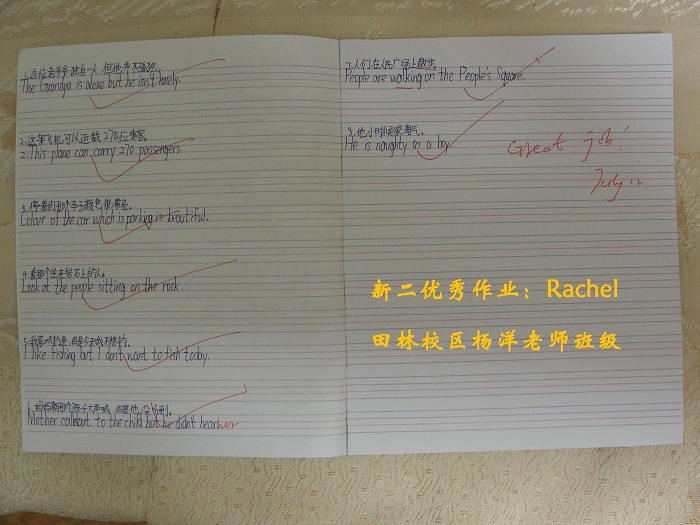 1.这位老爷爷独自一人,但他并不孤独。
The Grandpa is alone but he isn't lonely.
2.这架飞机可以运载270位乘客。
2.This plane can carry 270 passengers.
3.停着的那个车子颜色很漂亮。
Colour of the car which is parking is beautiful.
4.看那个坐在岩石上的人。
Look at the people sitting on the rock.
5.我喜欢钓鱼,但是今天我不想钓。
I like fishing but I don't want to fish today.
6.妈妈朝那个孩子大声喊,但是他没听到。
Mother callout to the child but he didn't hear her
7.人们在人民广场上散步
People are walking on the People's Square.
8.他小时候很淘气。
He is naughty as a boy.
Great job!
July 12.
新二优秀作业:Rachel
田林校区杨洋老师班级